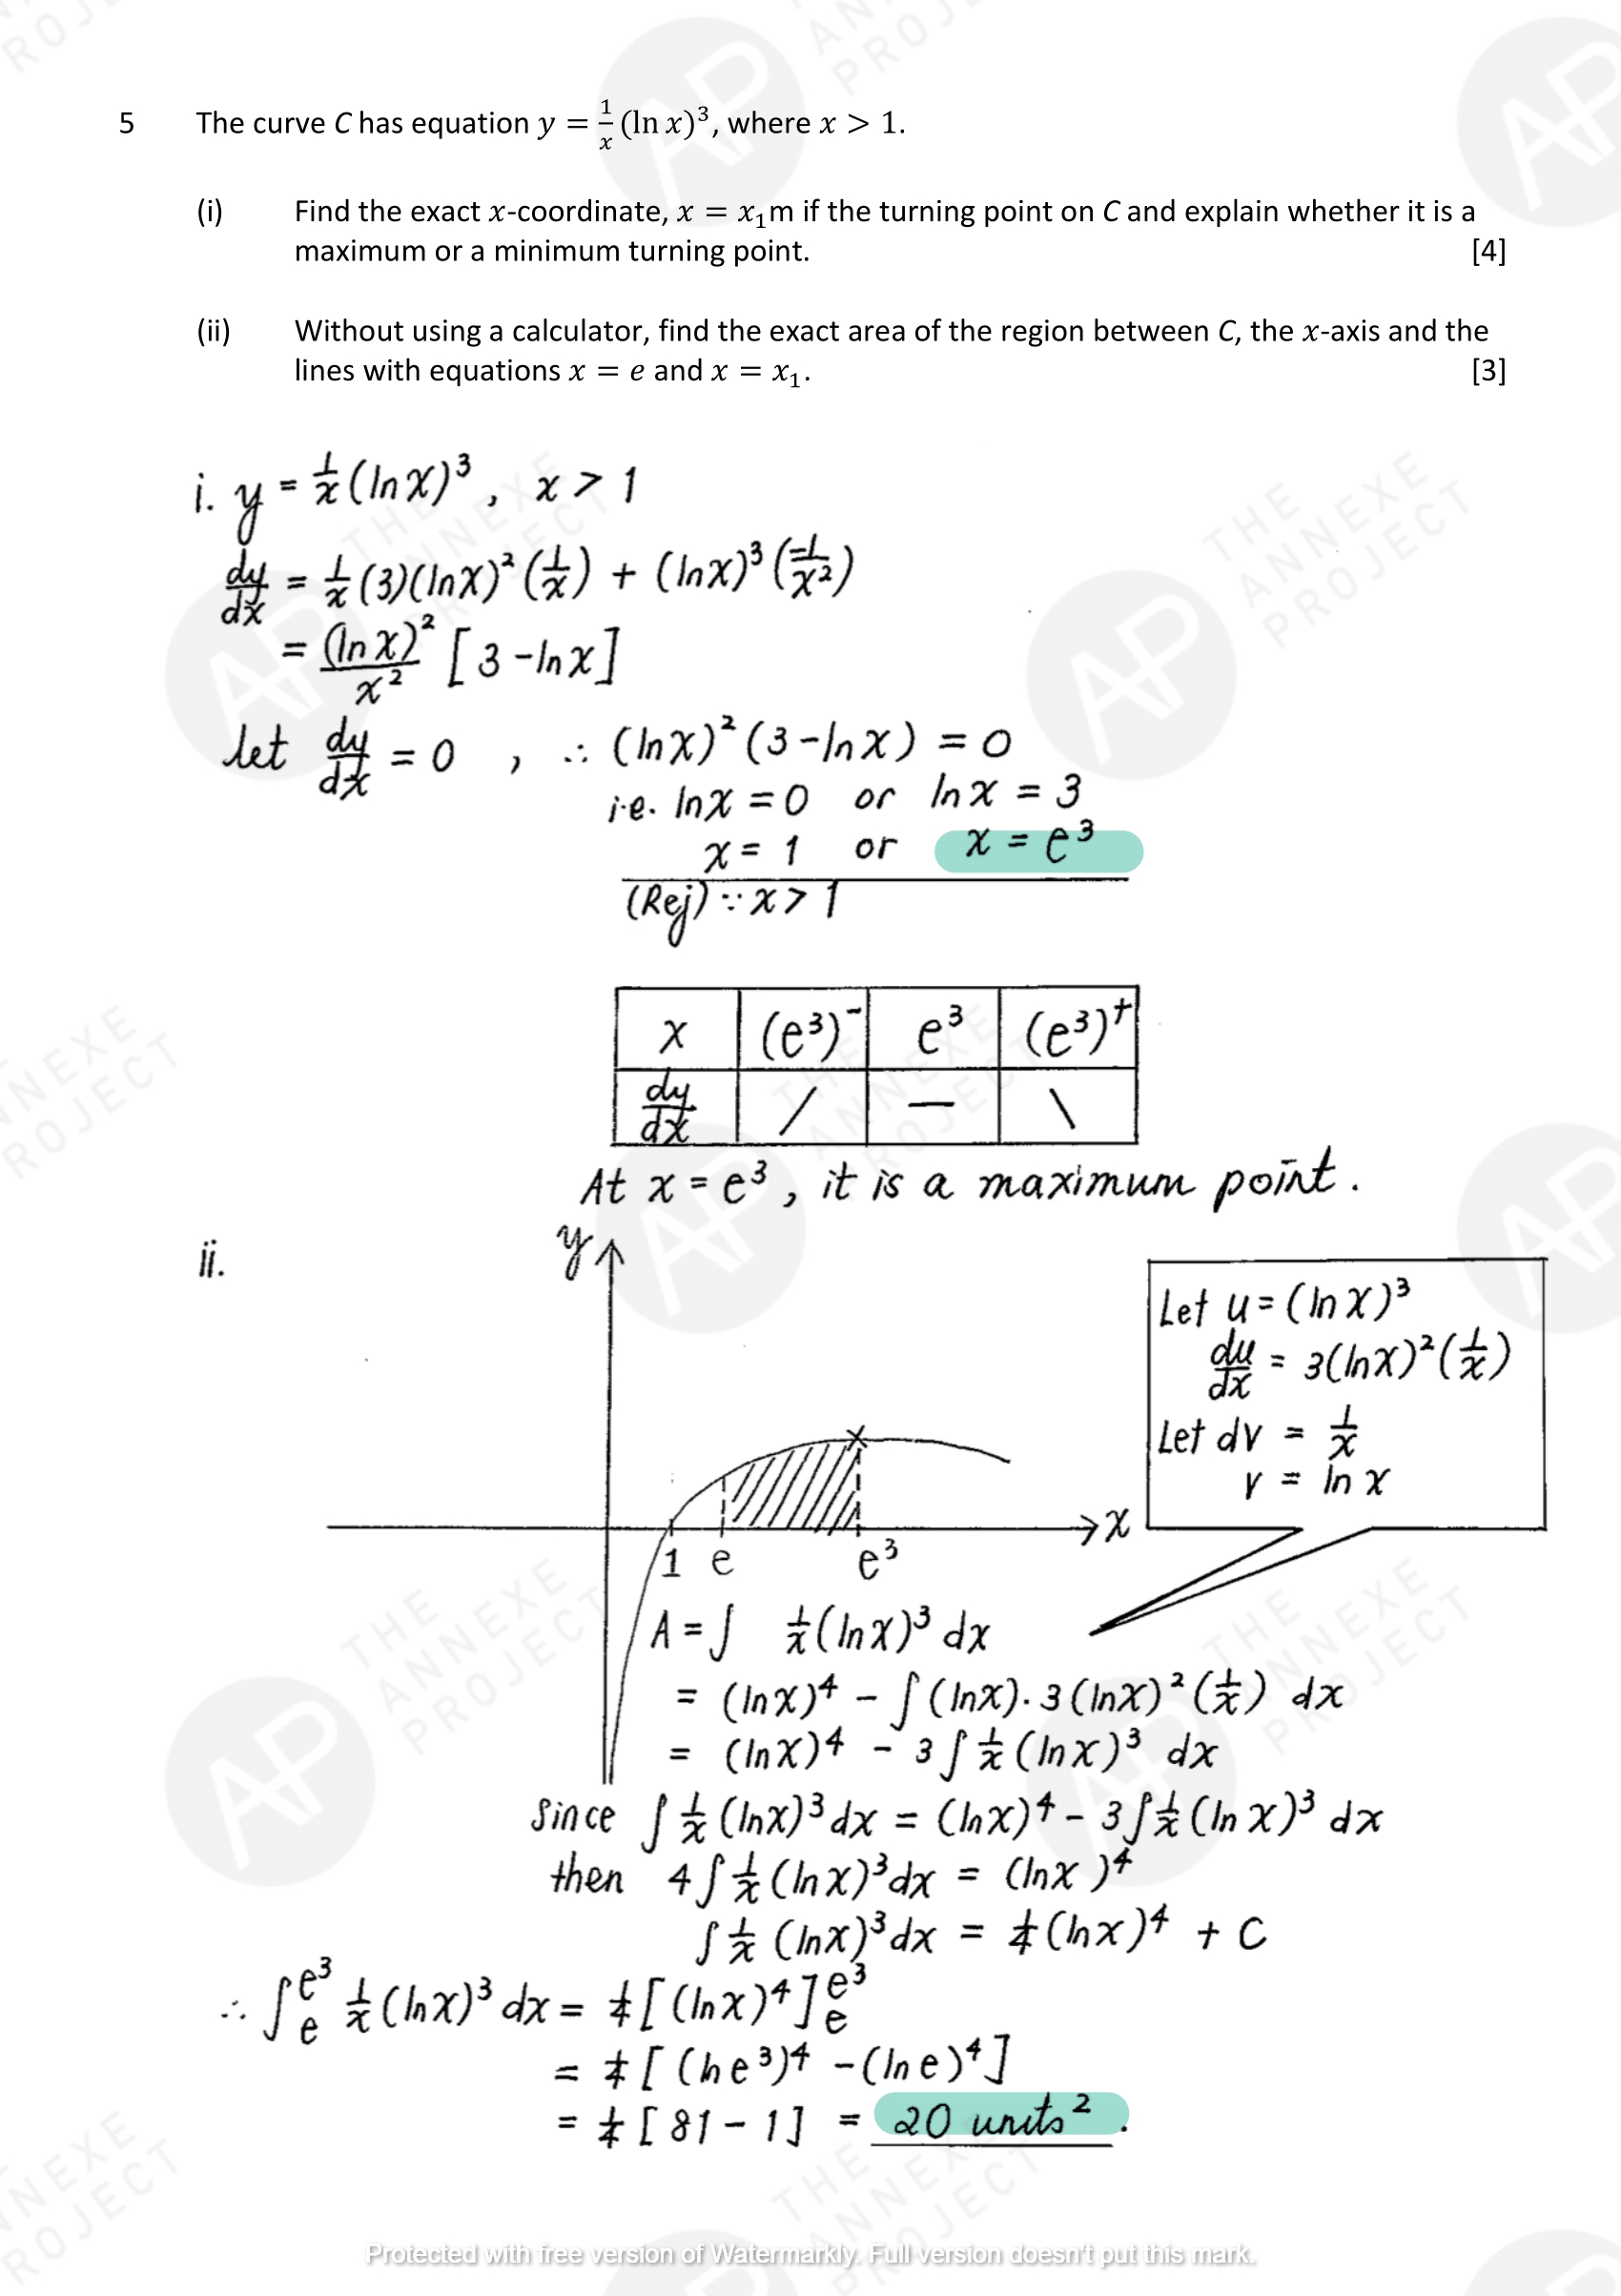 5 The curve C has equation y = 1/x (ln x)³, where x > 1.
(i) Find the exact x-coordinate, x = x₁m if the turning point on C and explain whether it is a
maximum or a minimum turning point. [4]
(ii) Without using a calculator, find the exact area of the region between C, the x-axis and the
lines with equations x = e and x = x₁. [3]
i. y = 1/x (ln x)³, x > 1
dy/dx = 1/x (3)(ln x)² (1/x) + (ln x)³ (-1/x²)
= (ln x)²/x² [3 - ln x]
let dy/dx = 0, ∴ (ln x)² (3 - ln x) = 0
i.e. ln x = 0 or ln x = 3
x = 1 or x = e³
(Rej) ∵ x > 1
x (e³)⁻ e³ (e³)⁺
dy/dx / — \
At x = e³, it is a maximum point.
ii.
y
Let u = (ln x)³
du/dx = 3(ln x)² (1/x)
Let dv = 1/x
v = ln x
x
1 e e³
A = ∫ 1/x (ln x)³ dx
= (ln x)⁴ - ∫ (ln x) · 3 (ln x)² (1/x) dx
= (ln x)⁴ - 3 ∫ 1/x (ln x)³ dx
since ∫ 1/x (ln x)³ dx = (ln x)⁴ - 3 ∫ 1/x (ln x)³ dx
then 4 ∫ 1/x (ln x)³ dx = (ln x)⁴
∫ 1/x (ln x)³ dx = 1/4 (ln x)⁴ + C
∴ ∫ₑ^e³ 1/x (ln x)³ dx = 1/4 [(ln x)⁴]ₑ^e³
= 1/4 [(ln e³)⁴ - (ln e)⁴]
= 1/4 [81 - 1] = 20 units².
THE ANNEXE PROJECT
AP
Protected with free version of Watermarkly. Full version doesn't put this mark.